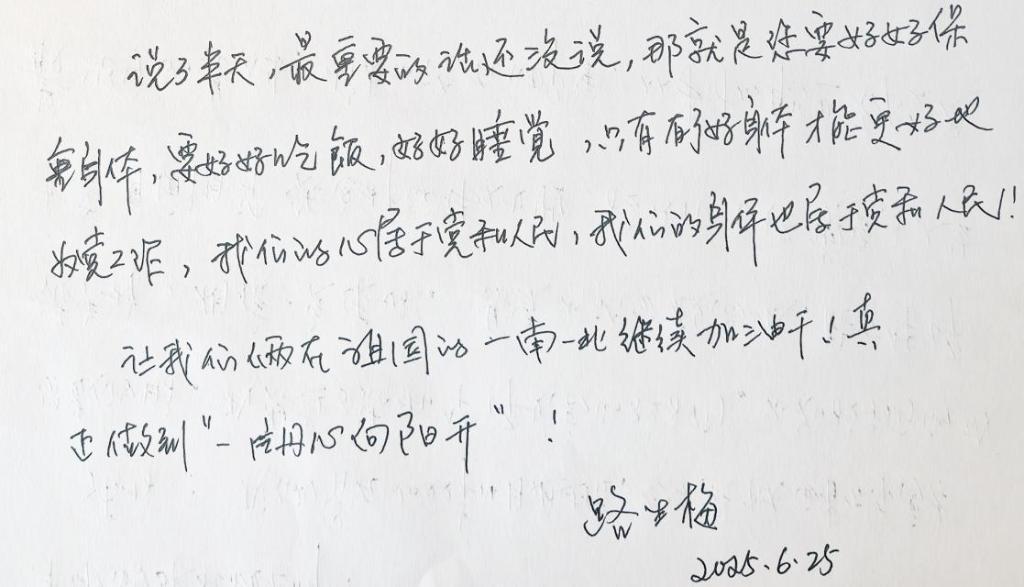 说了半天,最重要的话还没说,那就是您要好好保
重身体,要好好吃飯,好好睡觉,只有有了好身体才能更好地
继续工作,我们的心属于党和人民,我们的身体也属于党和人民!
让我们俩在祖国的一南一北继续加油干!真
正做到"一片丹心向阳开"!
路生梅
2025.6.25